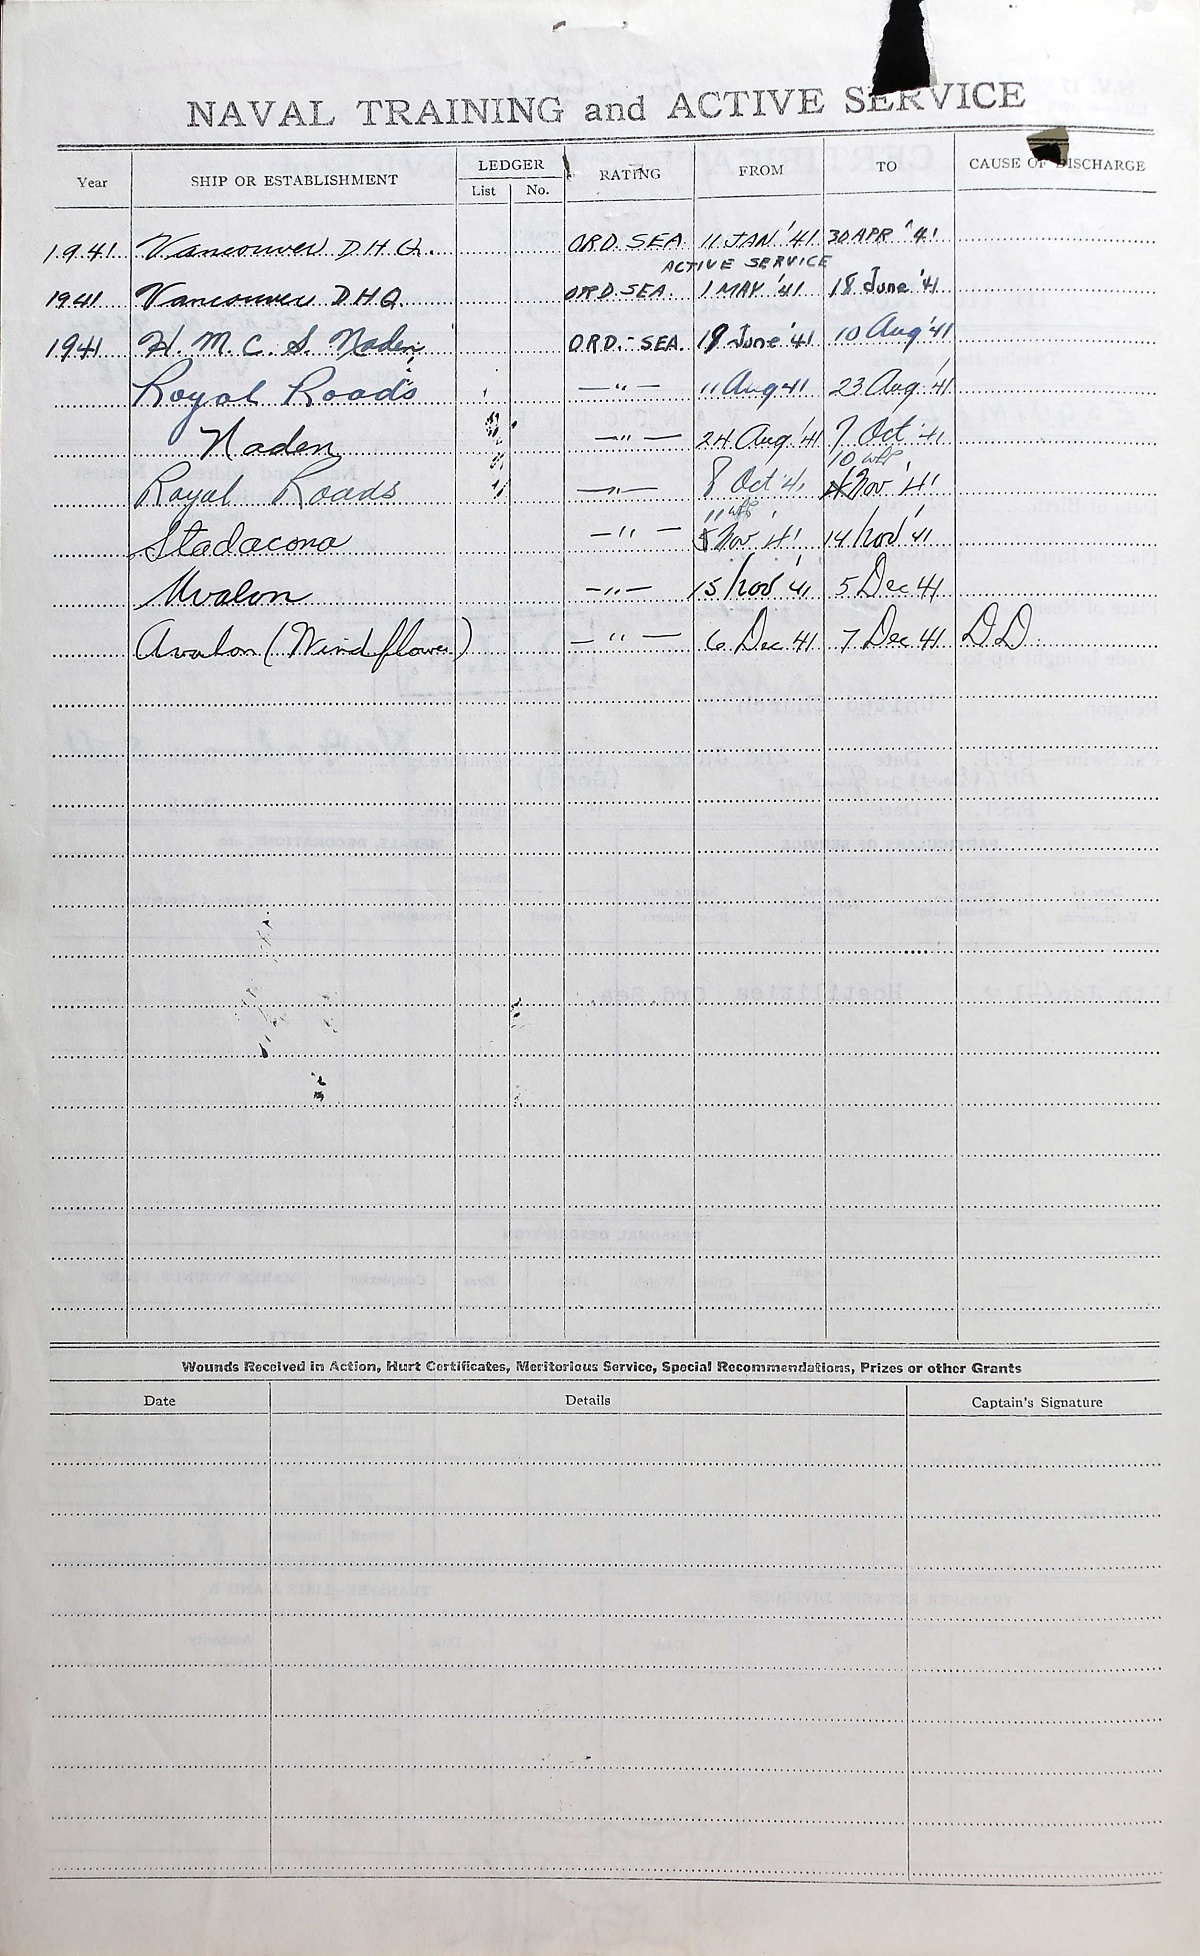 NAVAL TRAINING and ACTIVE SERVICE
Year SHIP OR ESTABLISHMENT LEDGER List No. RATING FROM TO CAUSE OF DISCHARGE
1941 Vancouver D.H.Q. ORD. SEA 11 JAN '41 30 APR '41
ACTIVE SERVICE
1941 Vancouver D.H.Q. ORD. SEA. 1 MAY '41 18 June '41
1941 H. M. C. S. Naden ORD.- SEA. 19 June '41 10 Aug '41
Royal Roads — " — 11 Aug 41 23 Aug '41
Naden — " — 24 Aug '41 7 Oct '41
10
Royal Roads — " — 8 Oct '41 Nov '41
11
Stadacona — " — 5 Nov '41 14 Nov '41
Avalon — " — 15 Nov '41 5 Dec 41
Avalon (Windflower) — " — 6 Dec 41 7 Dec 41 D.D.
Wounds Received in Action, Hurt Certificates, Meritorious Service, Special Recommendations, Prizes or other Grants
Date Details Captain's Signature